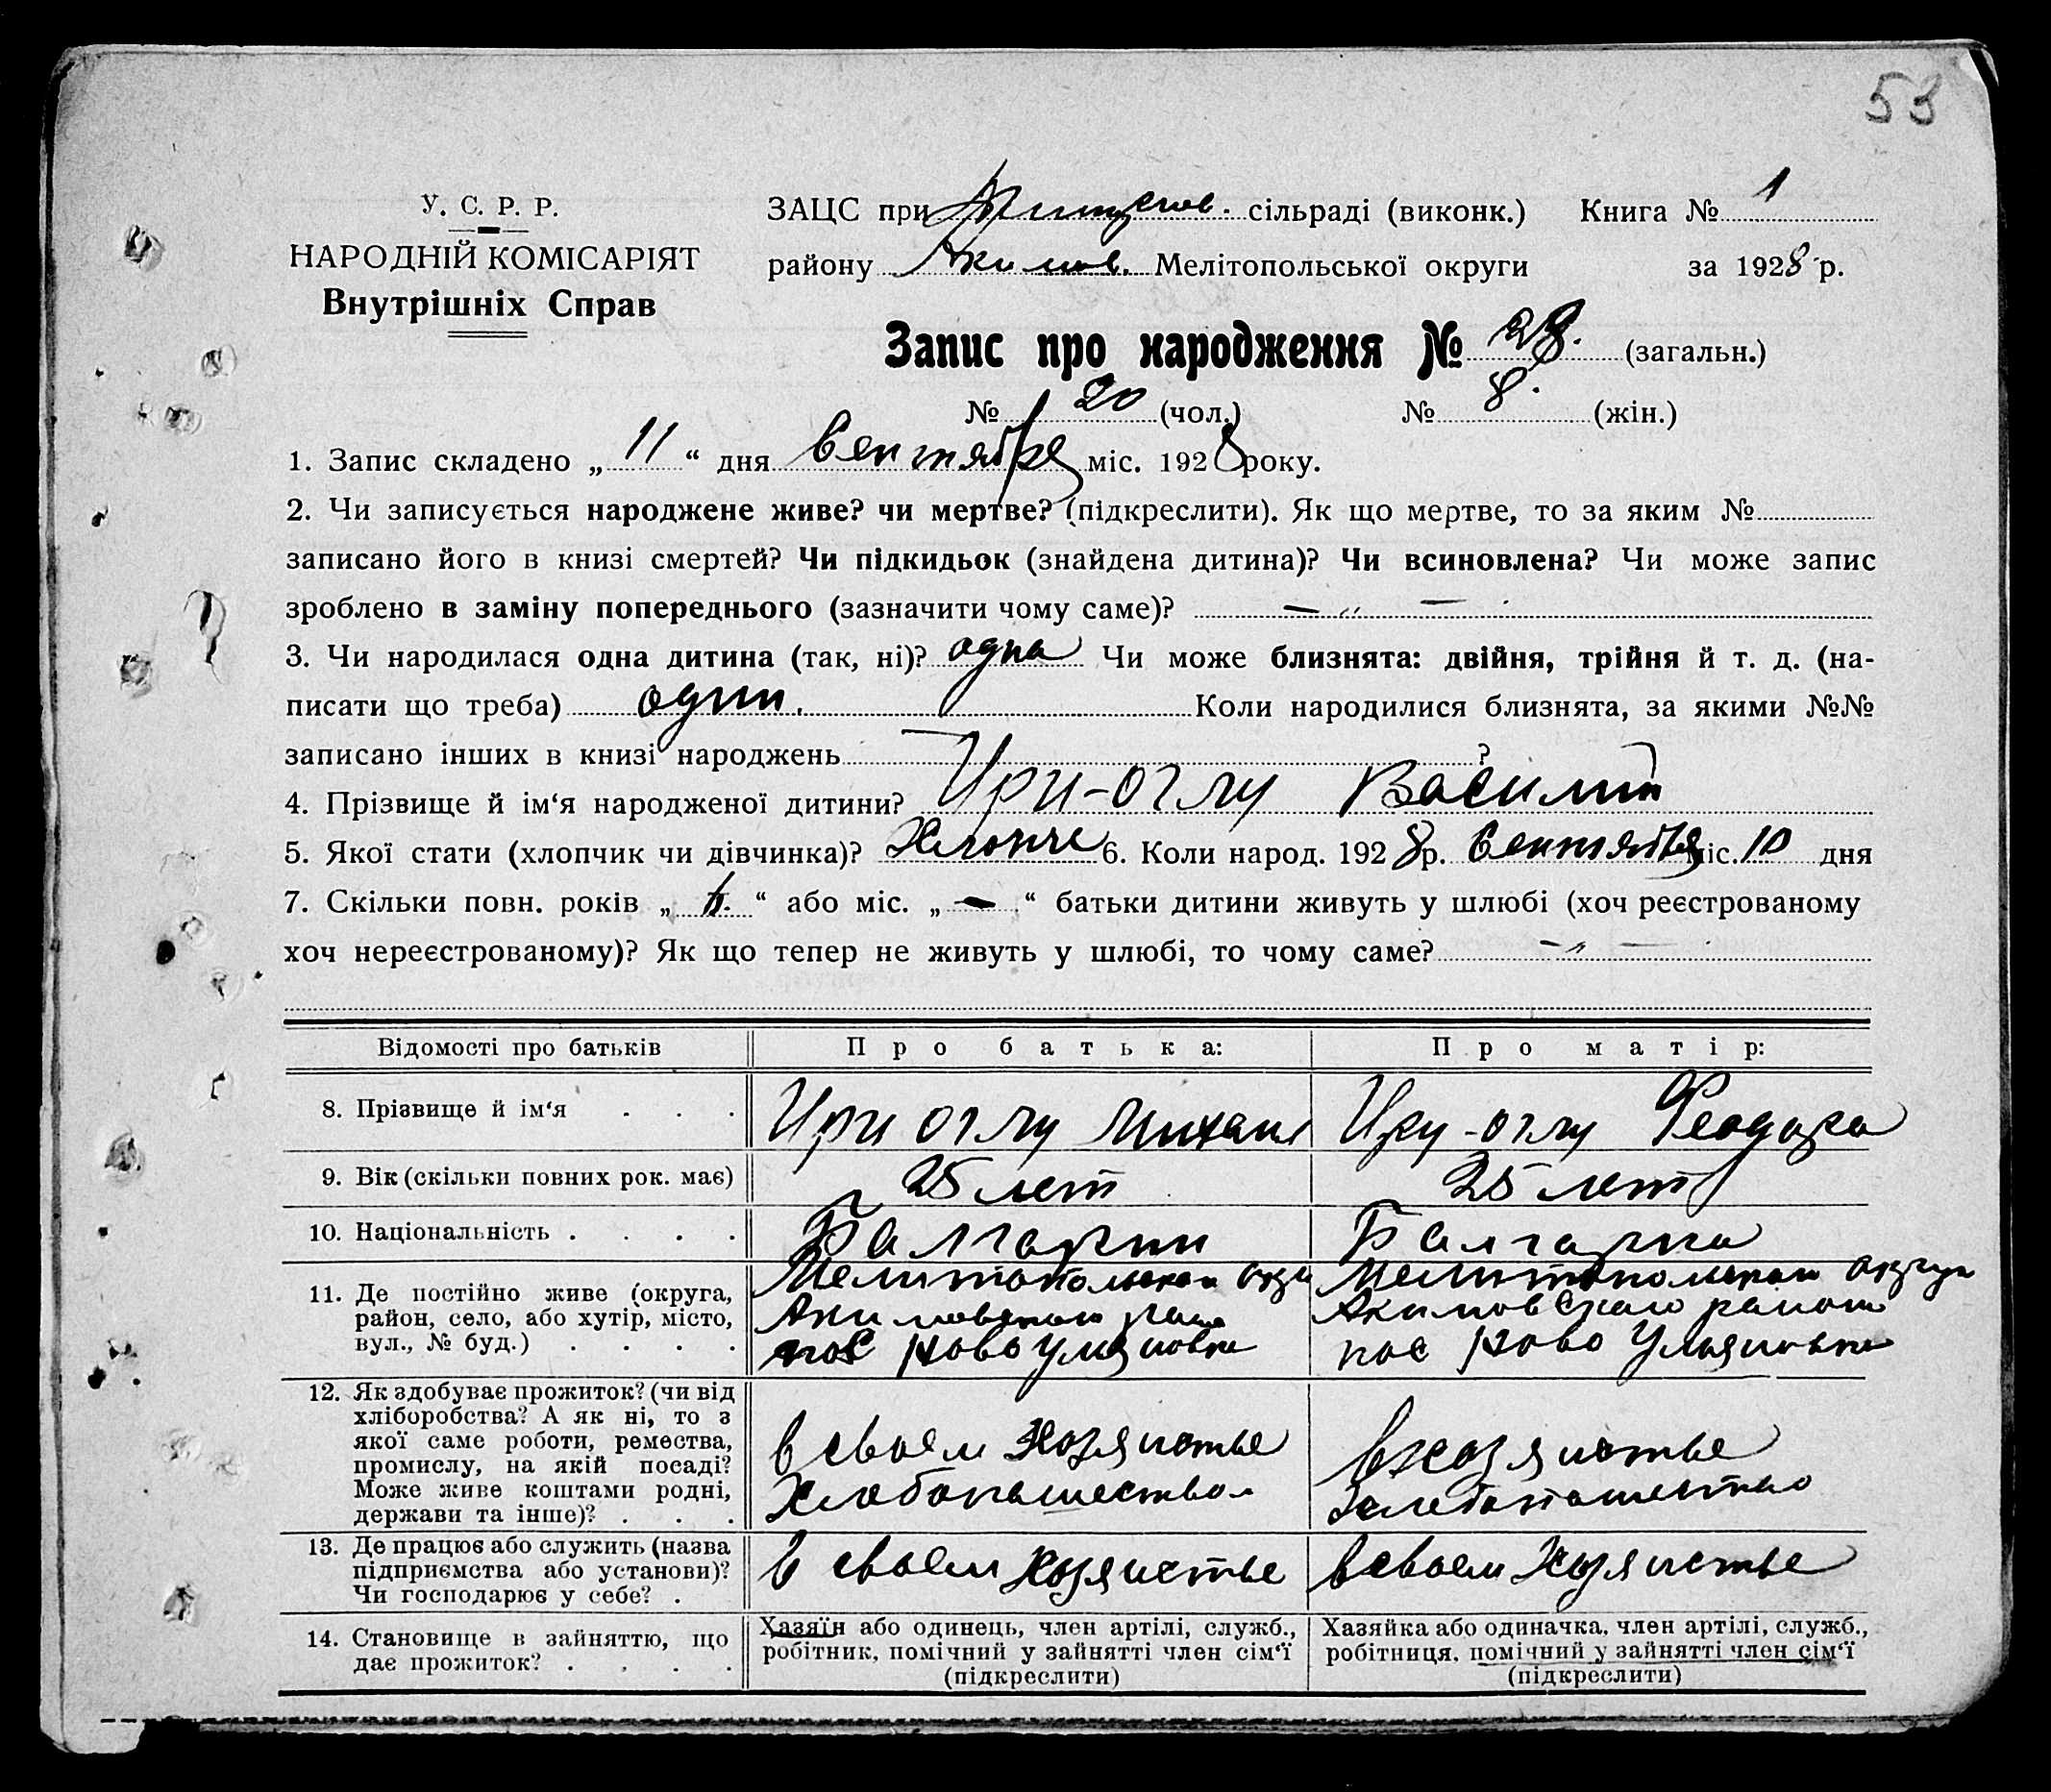 53
У. С. Р. Р.
НАРОДНІЙ КОМІСАРІЯТ
Внутрішніх Справ
ЗАЦС при сільраді (виконк.) Книга № 1
району Акимов. Мелітопольської округи за 1928 р.
Запис про народження № 28. (загальн.)
№ 20 (чол.) № 8. (жін.)
1. Запис складено „ 11 “ дня Сентября міс. 1928 року.
2. Чи записується народжене живе? чи мертве? (підкреслити). Як що мертве, то за яким №
записано його в книзі смертей? Чи підкидьок (знайдена дитина)? Чи всиновлена? Чи може запис
зроблено в заміну попереднього (зазначити чому саме)? — „ —
3. Чи народилася одна дитина (так, ні)? одна Чи може близнята: двійня, трійня й т. д. (на-
писати що треба) один. Коли народилися близнята, за якими №№
записано інших в книзі народжень ?
4. Прізвище й ім‘я народженої дитини? Ири-оглу Василий
5. Якої стати (хлопчик чи дівчинка)? 6. Коли народ. 1928 р. Сентября міс. 10 дня
7. Скільки повн. років „ “ або міс. „ — “ батьки дитини живуть у шлюбі (хоч реєстрованому
хоч нереєстрованому)? Як що тепер не живуть у шлюбі, то чому саме? — „ —
Відомості про батьків Про батька: Про матір:
8. Прізвище й ім‘я . . . Ири оглу Михаил Ири-оглу Феодора
9. Вік (скільки повних рок. має) 25 лет 25 лет
10. Національність . . . . Балгарин Балгарка
11. Де постійно живе (округа, район, село, або хутір, місто, вул., № буд.) . . . .
Мелитопольской окр
Акимовского рай
пос Ново Уляновка
Мелитопольской округи
Акимовского района
пос Ново Уляновка
12. Як здобуває прожиток? (чи від хліборобства? А як ні, то з якої саме роботи, ремества, промислу, на якій посаді? Може живе коштами родні, держави та інше)? . . .
в своем Хозяистве
Хлебопашеством
в хозяистве
13. Де працює або служить (назва підприємства або установи)? Чи господарює у себе? .
В своем Хозяистве
В своем Хозяистве
14. Становище в зайняттю, що дає прожиток? . . . .
Хазяїн або одинець, член артілі, служб.,
робітник, помічний у зайнятті член сім‘ї
(підкреслити)
Хазяйка або одиначка, член артілі, служб.,
робітниця, помічний у зайнятті член сім‘ї
(підкреслити)